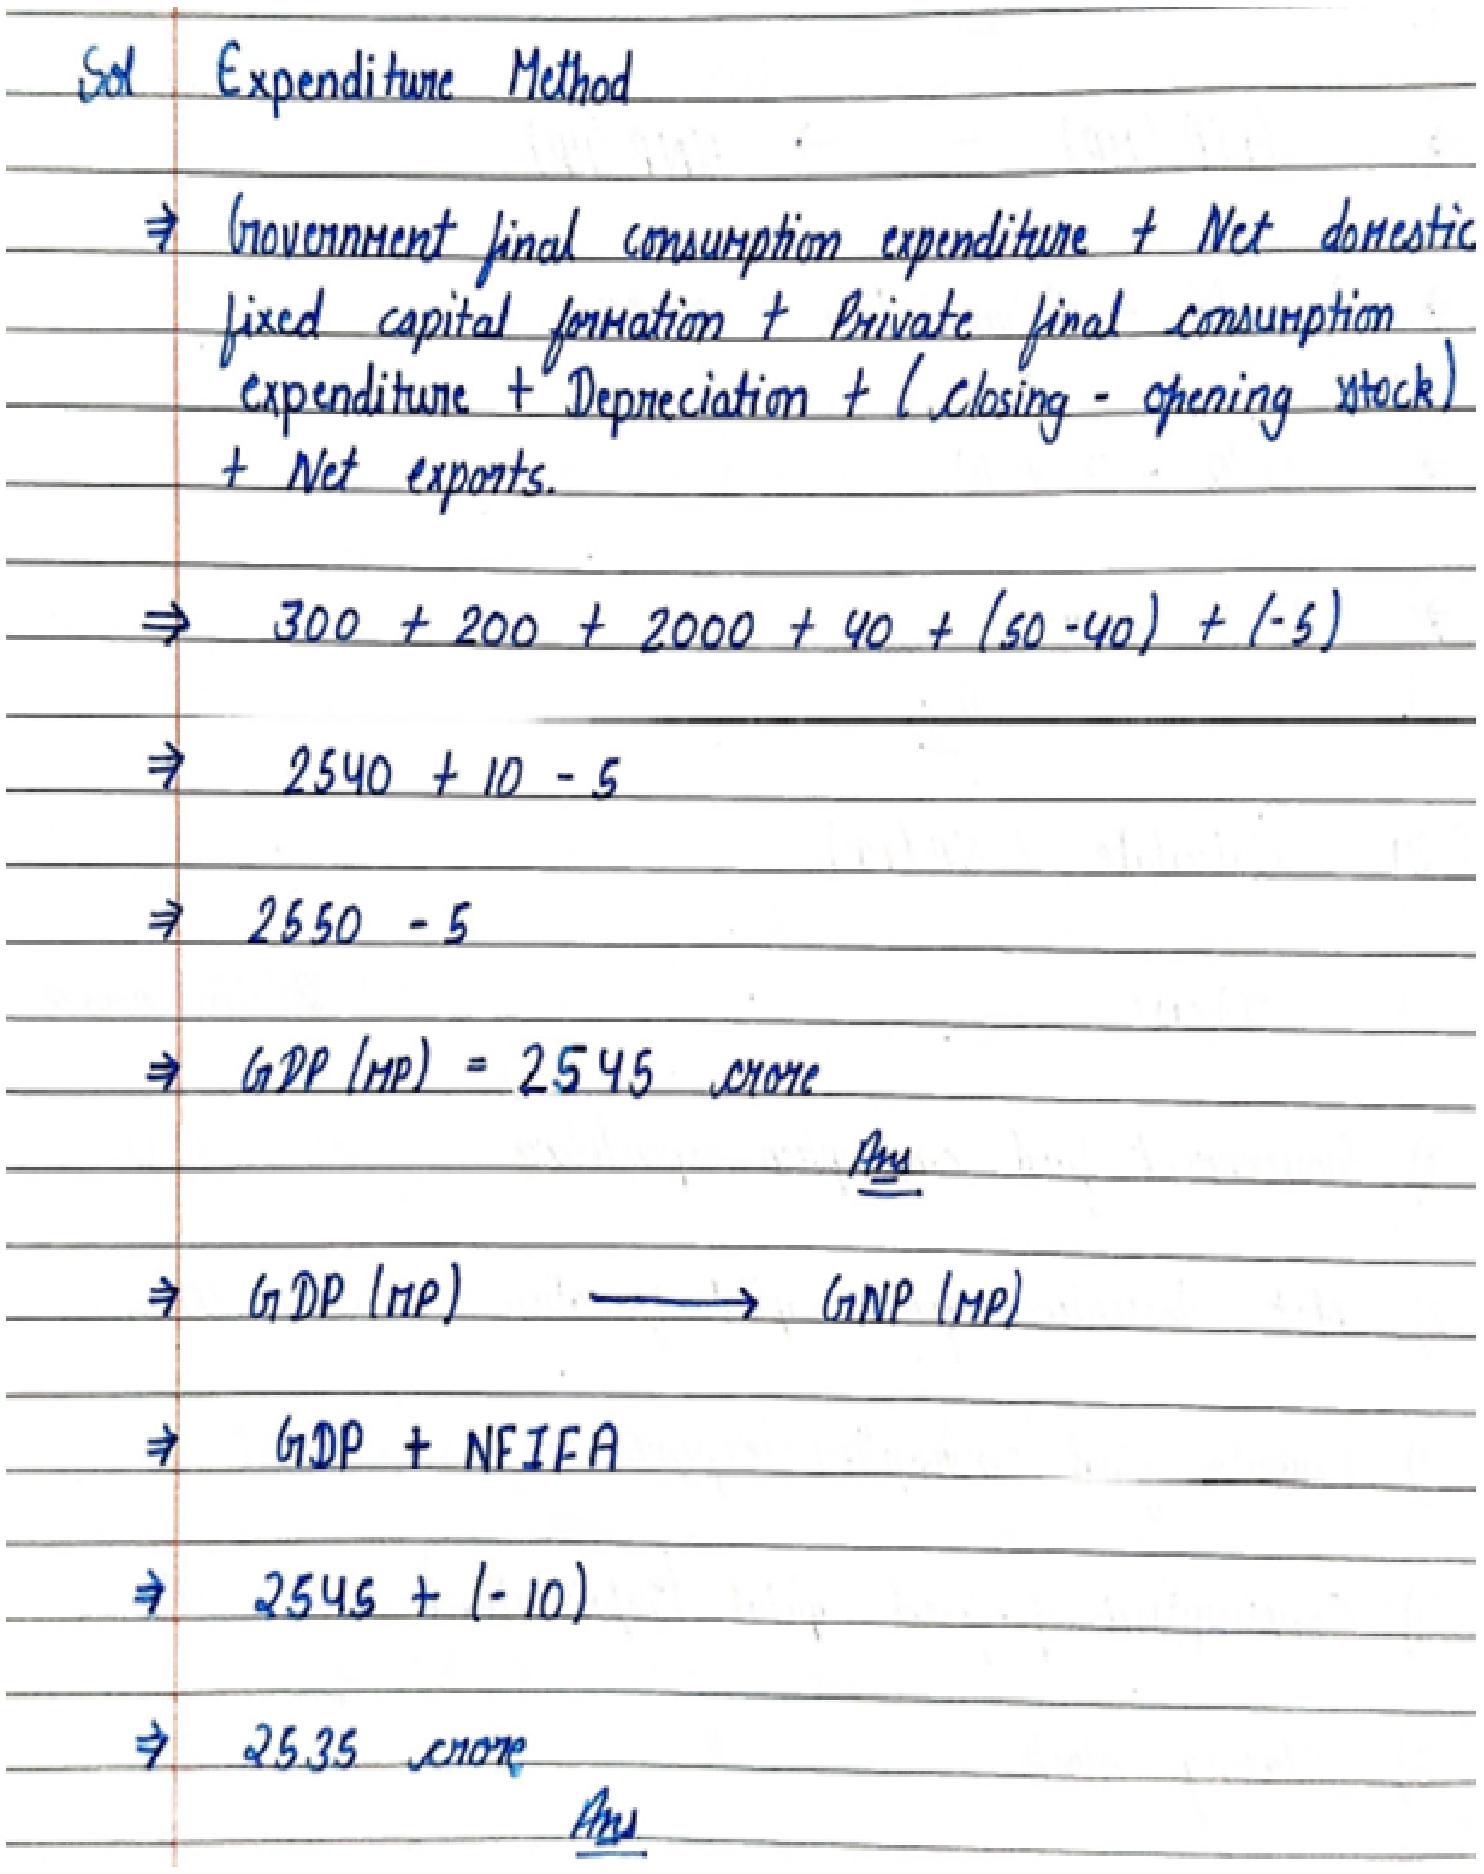 Sol Expenditure Method
⇒ Government final consumption expenditure + Net domestic
fixed capital formation + Private final consumption
expenditure + Depreciation + (Closing - opening stock)
+ Net exports.
⇒ 300 + 200 + 2000 + 40 + (50 - 40) + (-5)
⇒ 2540 + 10 - 5
⇒ 2550 - 5
⇒ GDP (MP) = 2545 crore
Ans
⇒ GDP (MP) ⟶ GNP (MP)
⇒ GDP + NFIFA
⇒ 2545 + (-10)
⇒ 2535 crore
Ans